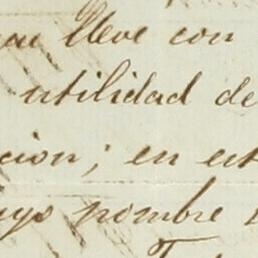 que lleve con
utilidad de
cion; en est
uyo nombre